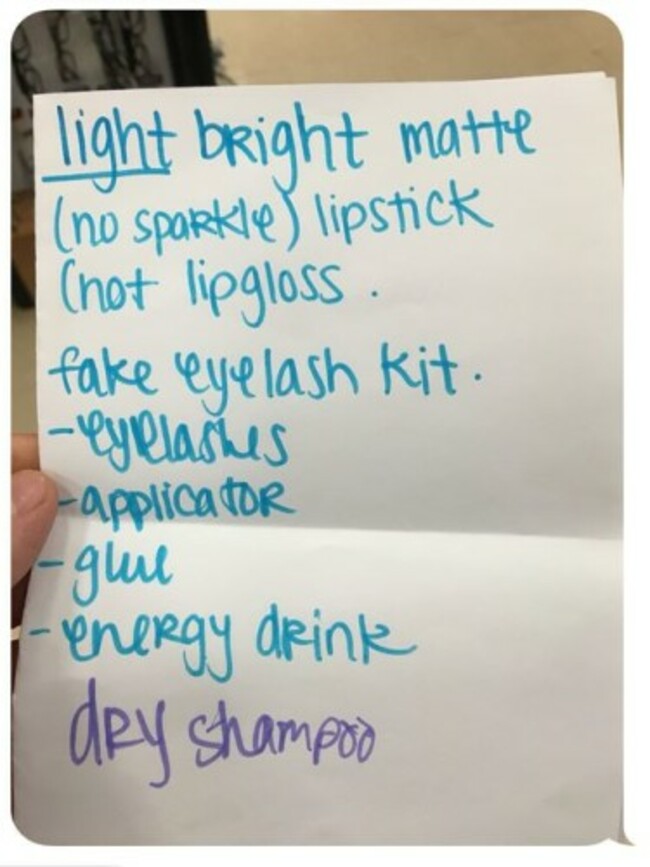 light bright matte
(no sparkle) lipstick
(not lipgloss .
fake eyelash kit.
-eyelashes
-applicator
-glue
-energy drink
dry shampoo